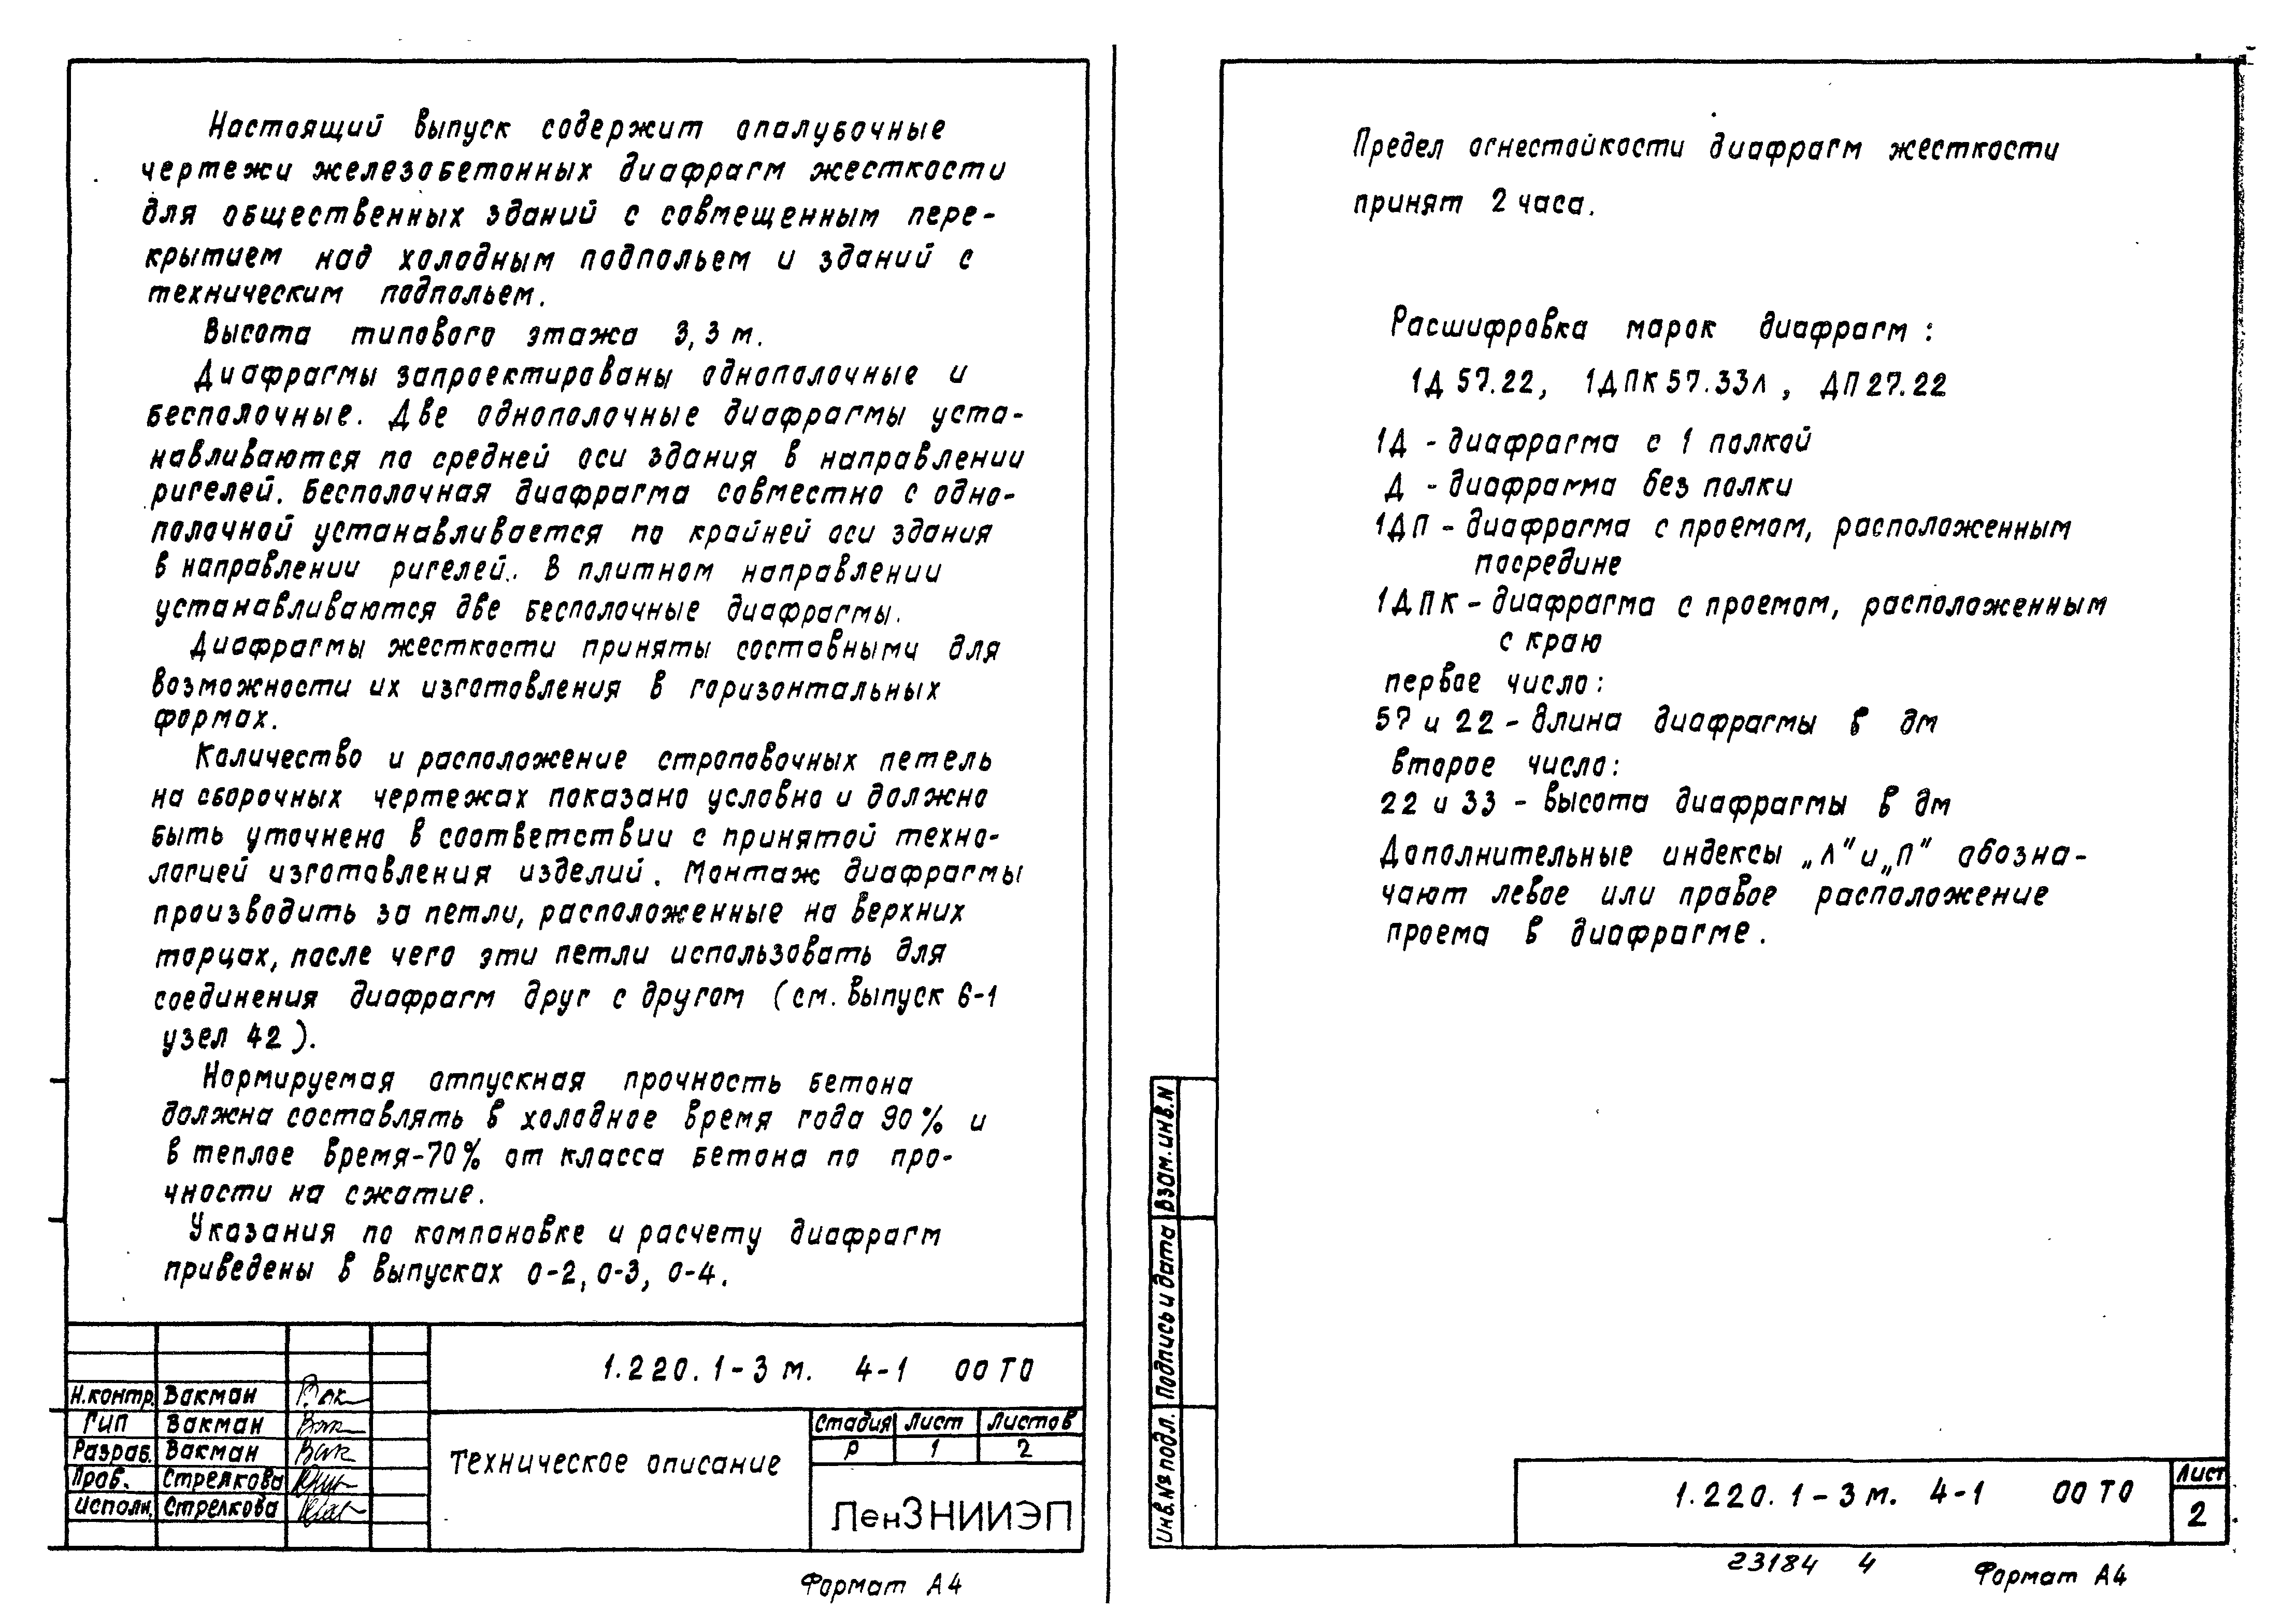 Настоящий выпуск содержит опалубочные
чертежи железобетонных диафрагм жесткости
для общественных зданий с совмещенным пере-
крытием над холодным подпольем и зданий с
техническим подпольем.
Высота типового этажа 3,3 м.
Диафрагмы запроектированы однополочные и
бесполочные. Две однополочные диафрагмы уста-
навливаются по средней оси здания в направлении
ригелей. Бесполочная диафрагма совместно с одно-
полочной устанавливается по крайней оси здания
в направлении ригелей. В плитном направлении
устанавливаются две бесполочные диафрагмы.
Диафрагмы жесткости приняты составными для
возможности их изготовления в горизонтальных
формах.
Количество и расположение строповочных петель
на сборочных чертежах показано условно и должно
быть уточнено в соответствии с принятой техно-
логией изготовления изделий. Монтаж диафрагмы
производить за петли, расположенные на верхних
торцах, после чего эти петли использовать для
соединения диафрагм друг с другом (см. выпуск 6-1
узел 42).
Нормируемая отпускная прочность бетона
должна составлять в холодное время года 90% и
в теплое время-70% от класса бетона по про-
чности на сжатие.
Указания по компановке и расчету диафрагм
приведены в выпусках 0-2, 0-3, 0-4.
1.220.1-3 м. 4-1 00 ТО
Н.контр. Вакман
ГИП Вакман
Разраб. Вакман
Пров. Стрелкова
Исполн. Стрелкова
Техническое описание
Стадия Лист Листов
Р 1 2
ЛенЗНИИЭП
Формат А4
Предел огнестойкости диафрагм жесткости
принят 2 часа.
Расшифровка марок диафрагм:
1Д 57.22, 1ДПК 57.33л, ДП 27.22
1Д - диафрагма с 1 полкой
Д - диафрагма без полки
1ДП - диафрагма с проемом, расположенным
посредине
1ДПК - диафрагма с проемом, расположенным
с краю
первое число:
57 и 22 - длина диафрагмы в дм
второе число:
22 и 33 - высота диафрагмы в дм
Дополнительные индексы „Л" и „П" обозна-
чают левое или правое расположение
проема в диафрагме.
Взам. инв. N
Подпись и дата
Инв. № подл.
1.220.1-3 м. 4-1 00 ТО
Лист
2
23184 4
Формат А4